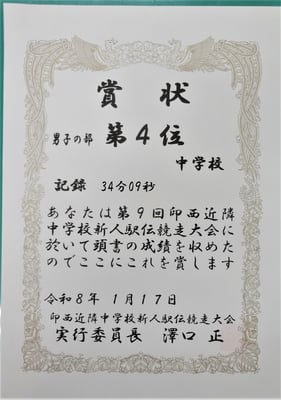 賞状
男子の部 第4位
中学校
記録 34分09秒
あなたは第9回印西近隣
中学校新人駅伝競走大会に
於いて頭書の成績を収めた
のでここにこれを賞します
令和8年1月17日
印西近隣中学校新人駅伝競走大会
実行委員長 澤口 正